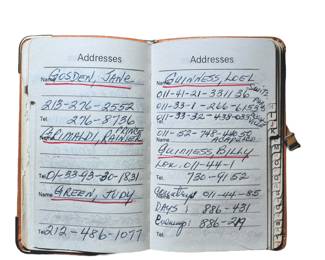 Addresses
Name GOSDEN, JANE
213-276-2552
Tel. 276-8736
PRINCE
Name GRIMALDI, RAINIER
Tel. 01-33-93-30-1831
Name GREEN, JUDY
Tel. 212-486-1077
Addresses
Name GUINNESS, LOEL
011-41-21-3311 36
011-33-1-266-61
Tel. 011-33-32-
011-52-748-
ACAPULCO
Name GUINNESS, BILLY
LON. 011-44-1
Tel. 730-9152
Name Country 011-44-
DAYS: 886-431
Tel. Evenings: 886-